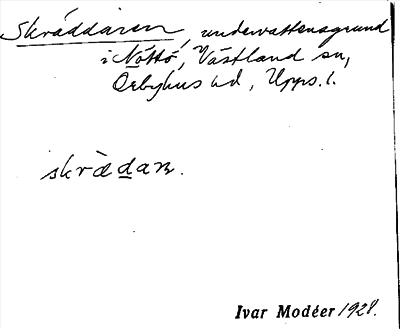 Skräddaren, undervattensgrund
i Nöttö, Västland sn,
Örbyhus hd, Upps. l.
skrädan.
Ivar Modéer 1928.